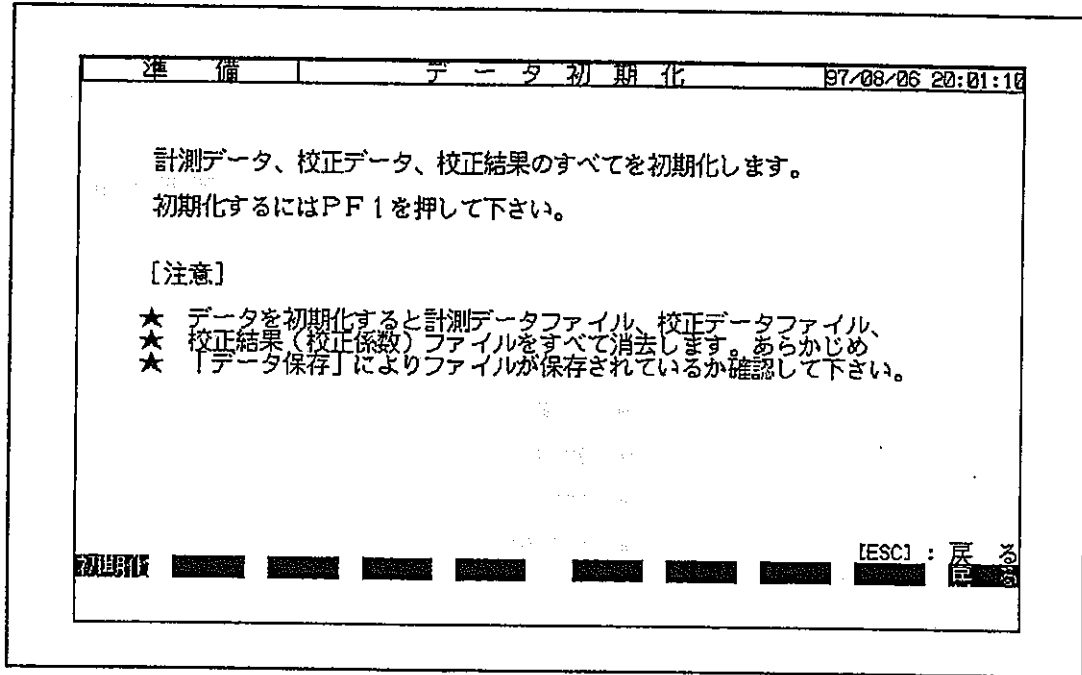 準 備 データ初期化 97/08/06 20:01:10
計測データ、校正データ、校正結果のすべてを初期化します。
初期化するにはPF1を押して下さい。
[注意]
★ データを初期化すると計測データファイル、校正データファイル、
★ 校正結果(校正係数)ファイルをすべて消去します。あらかじめ
★ 「データ保存」によりファイルが保存されているか確認して下さい。
[ESC]:戻 る
初期化 戻 る